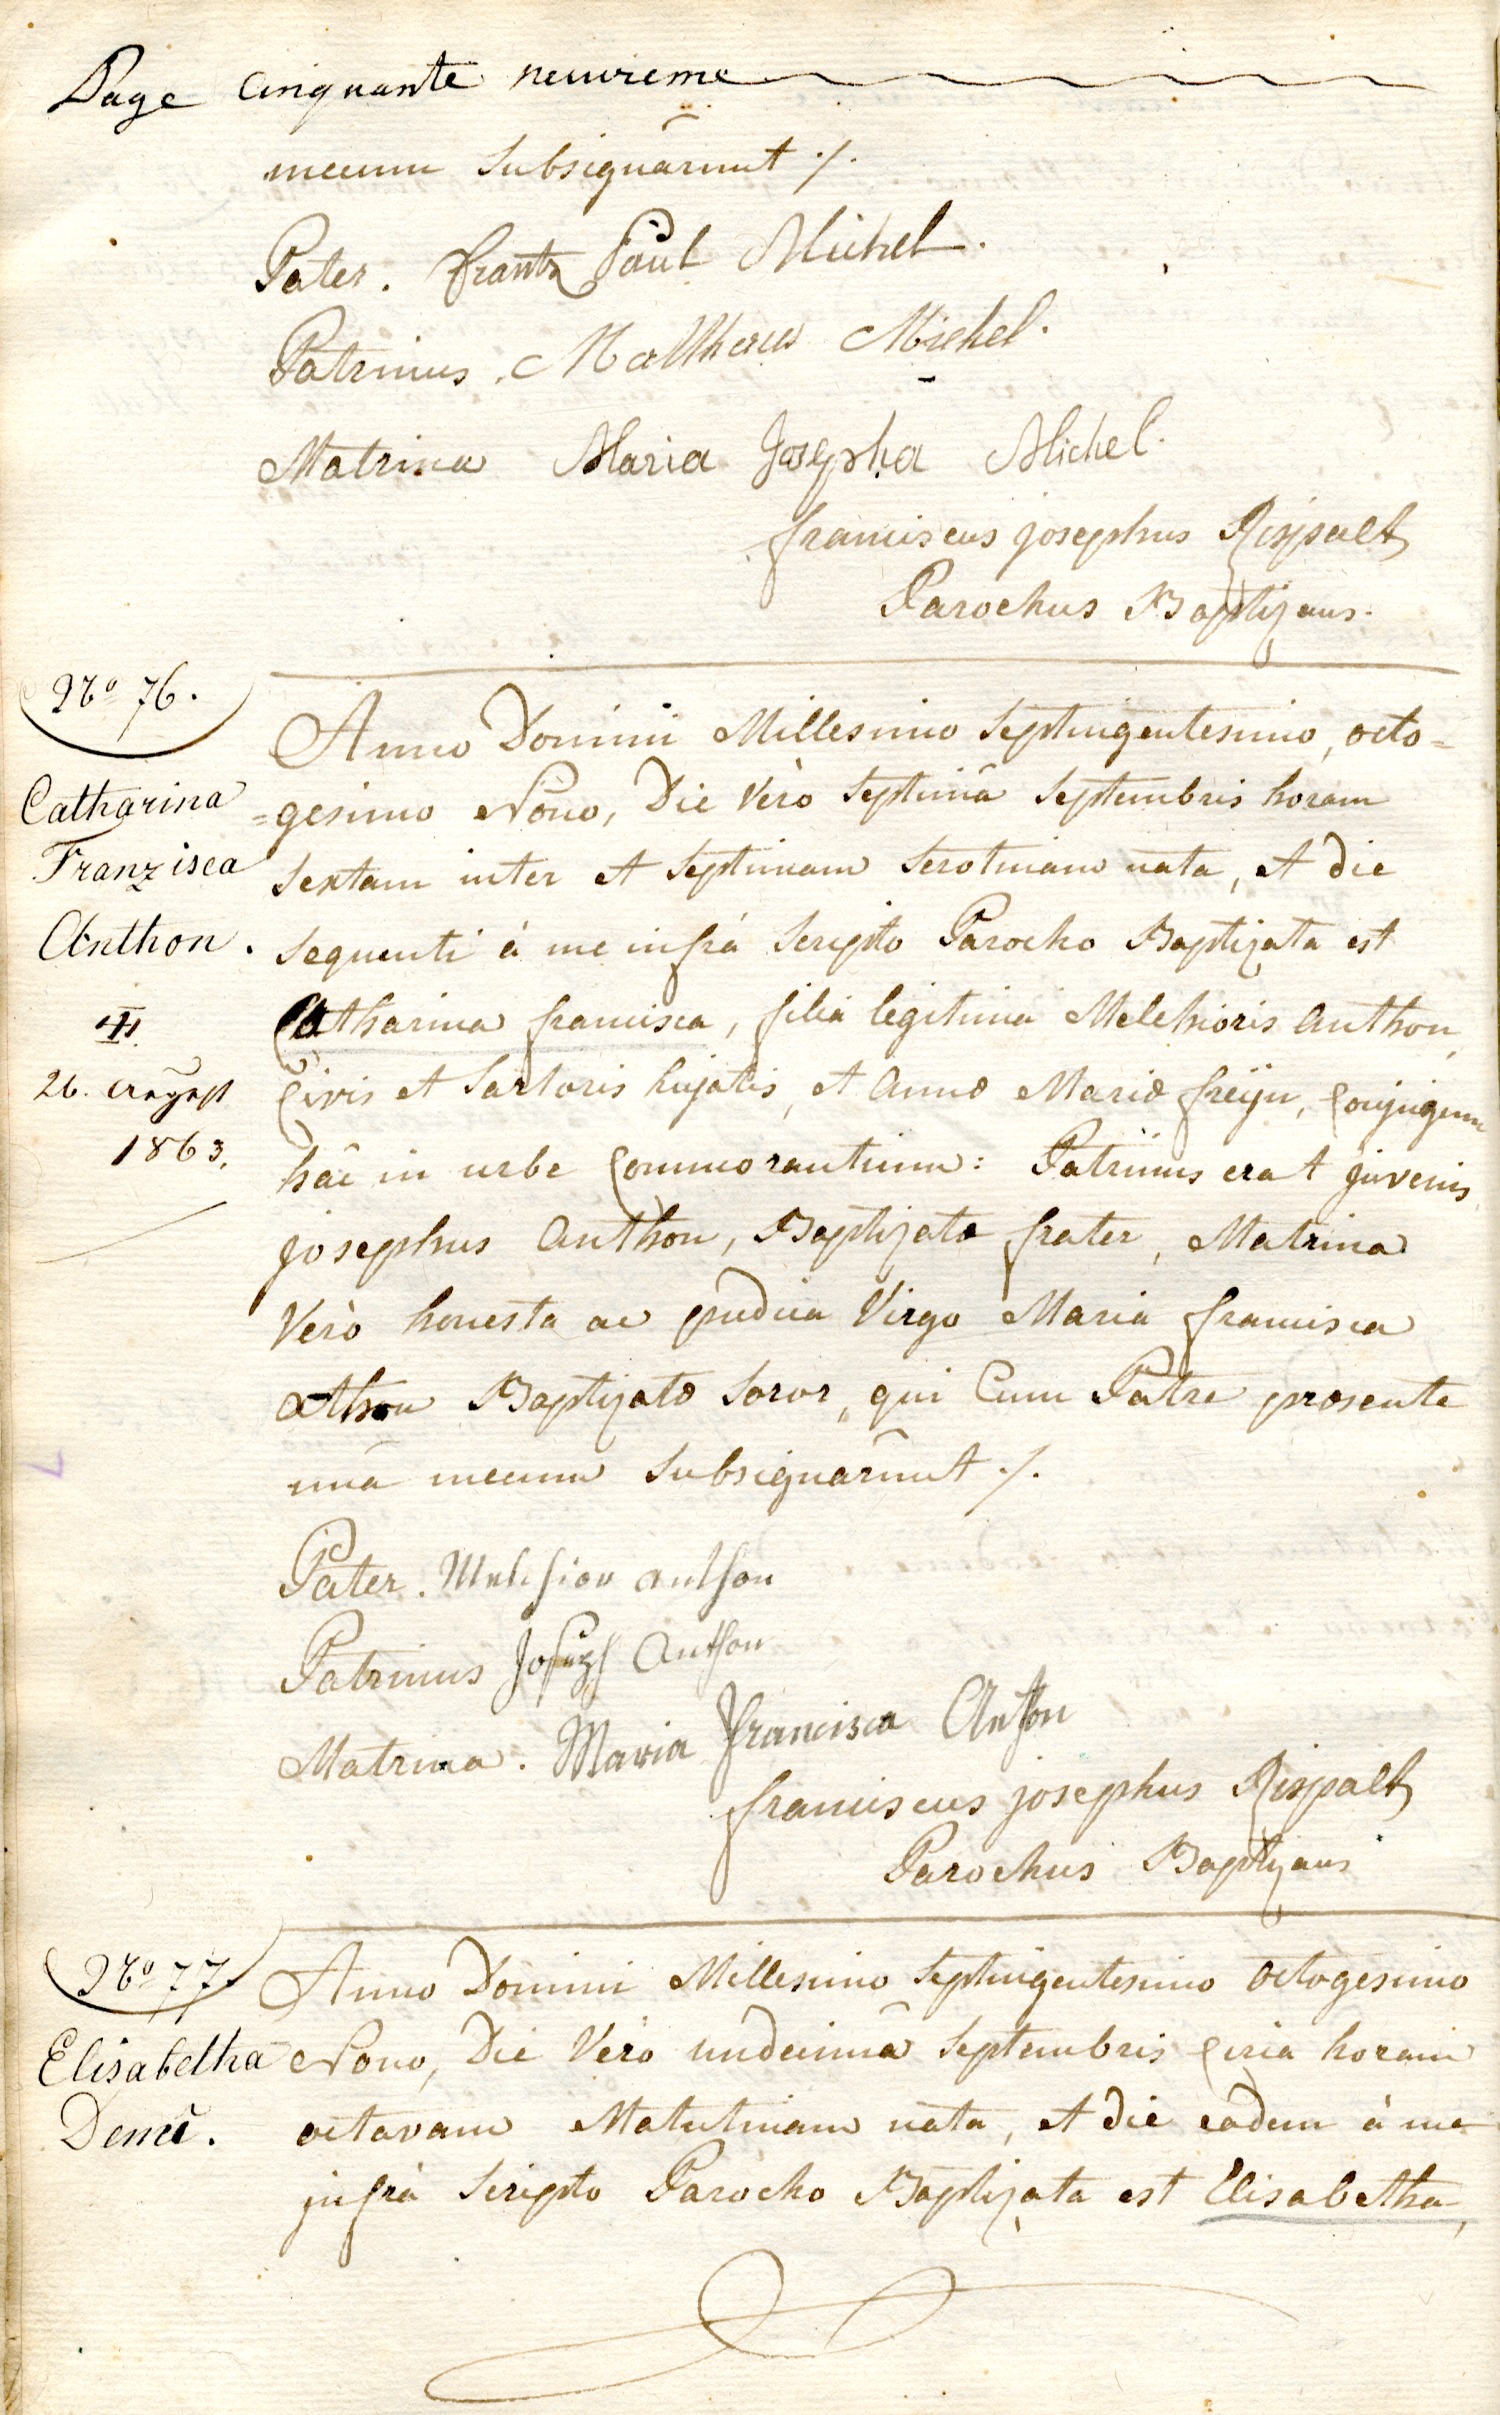 Page cinquante neuvieme
mecum subsignârunt ./.
Pater. Frantz Paul Michel.
Patrinus. Mattheus Michel.
Matrina Maria Josepha Michel.
franciscus josephus Rispalt
Parochus Baptizans.
No 76.
Catharina
Franzisca
Anthon.
26. August
1863.
Anno Domini Millesimo Septingentesimo, octo=
=gesimo Nono, Die Verò Septimâ Septembris horam
Sextam inter et Septimam Serotinam nata, et die
sequenti à me infrá Scripto Parocho Baptizata est
Catharina francisca, filia legitima Melchioris Anthon,
Civis et Sartoris hujatis, et Annæ Mariæ freÿn, Conjugum
hâc in urbe Commorantium: Patrinus erat juvenis
josephus Anthon, Baptizatæ frater, Matrina
Verò honesta ac pudica Virgo Maria francisca
Athon Baptizatæ Soror, qui Cum Patre præsente
unâ mecum Subsignârunt ./.
Pater. Melchior Anthon
Patrinus Joseph Anthon
Matrina. Maria Francisca Anthon
franciscus josephus Rispalt
Parochus Baptizans
No 77.
Elisabetha
Anno Domini Millesimo Septingentesimo octogesimo
Nono, Die Verò undecimâ Septembris Circa horam
octavam Matutinam nata, et die eadem à me
infrà Scripto Parocho Baptizata est Elisabetha,